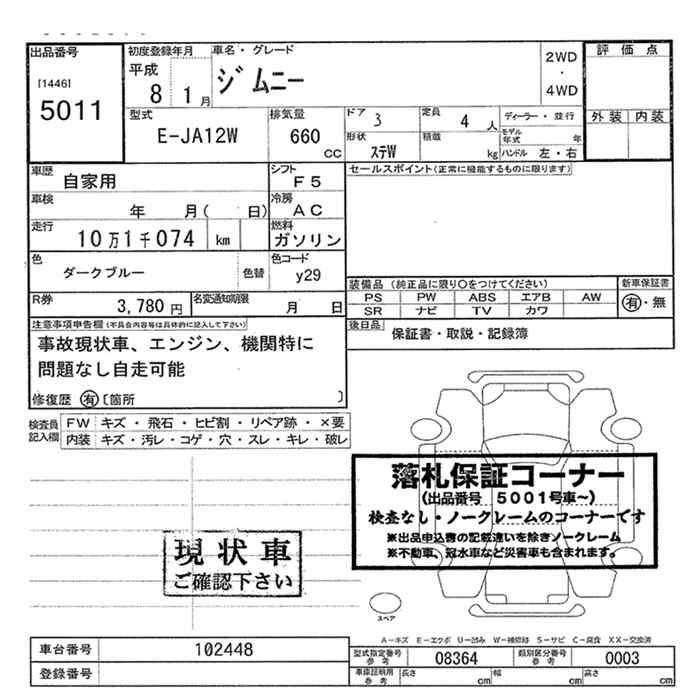 出品番号
[1446]
5011
初度登録年月
平成
8 1 月
車名・グレード
ジムニー
2WD
・
4WD
評価点
外装 内装
型式
E-JA12W
排気量
660
CC
ドア
3
定員
4 人
ディーラー・並行
形状
ステW
積載
kg
モデル年式 年
ハンドル 左・右
車歴
自家用
シフト
F5
車検
年 月( 日)
冷房
AC
走行
10万1千074 km
燃料
ガソリン
色
ダークブルー
色替
色コード
y29
R券
3,780 円
名変通知期限
月 日
セールスポイント(正常に機能するものに限ります)
装備品(純正品に限り○をつけてください)
新車保証書
PS PW ABS エアB AW
SR ナビ TV カワ
有・無
後日品
保証書・取説・記録簿
注意事項申告欄(不具合内容等は具体的に記入して下さい)
事故現状車、エンジン、機関特に
問題なし自走可能
修復歴 有 〔箇所 〕
検査員
記入欄
FW キズ・飛石・ヒビ割・リペア跡・×要
内装 キズ・汚レ・コゲ・穴・スレ・キレ・破レ
落札保証コーナー
(出品番号 5001号車~)
検査なし・ノークレームのコーナーです
※出品申込書の記載違いを除きノークレーム
※不動車、冠水車など災害車も含まれます。
現状車
ご確認下さい
スペア
A-キズ E-エクボ U-凹み W-補修跡 S-サビ C-腐食 XX-交換済
車台番号
102448
登録番号
型式指定番号
参考
08364
類別区分番号
参考
0003
車庫証明用
参考
長さ cm
幅 cm
高さ cm